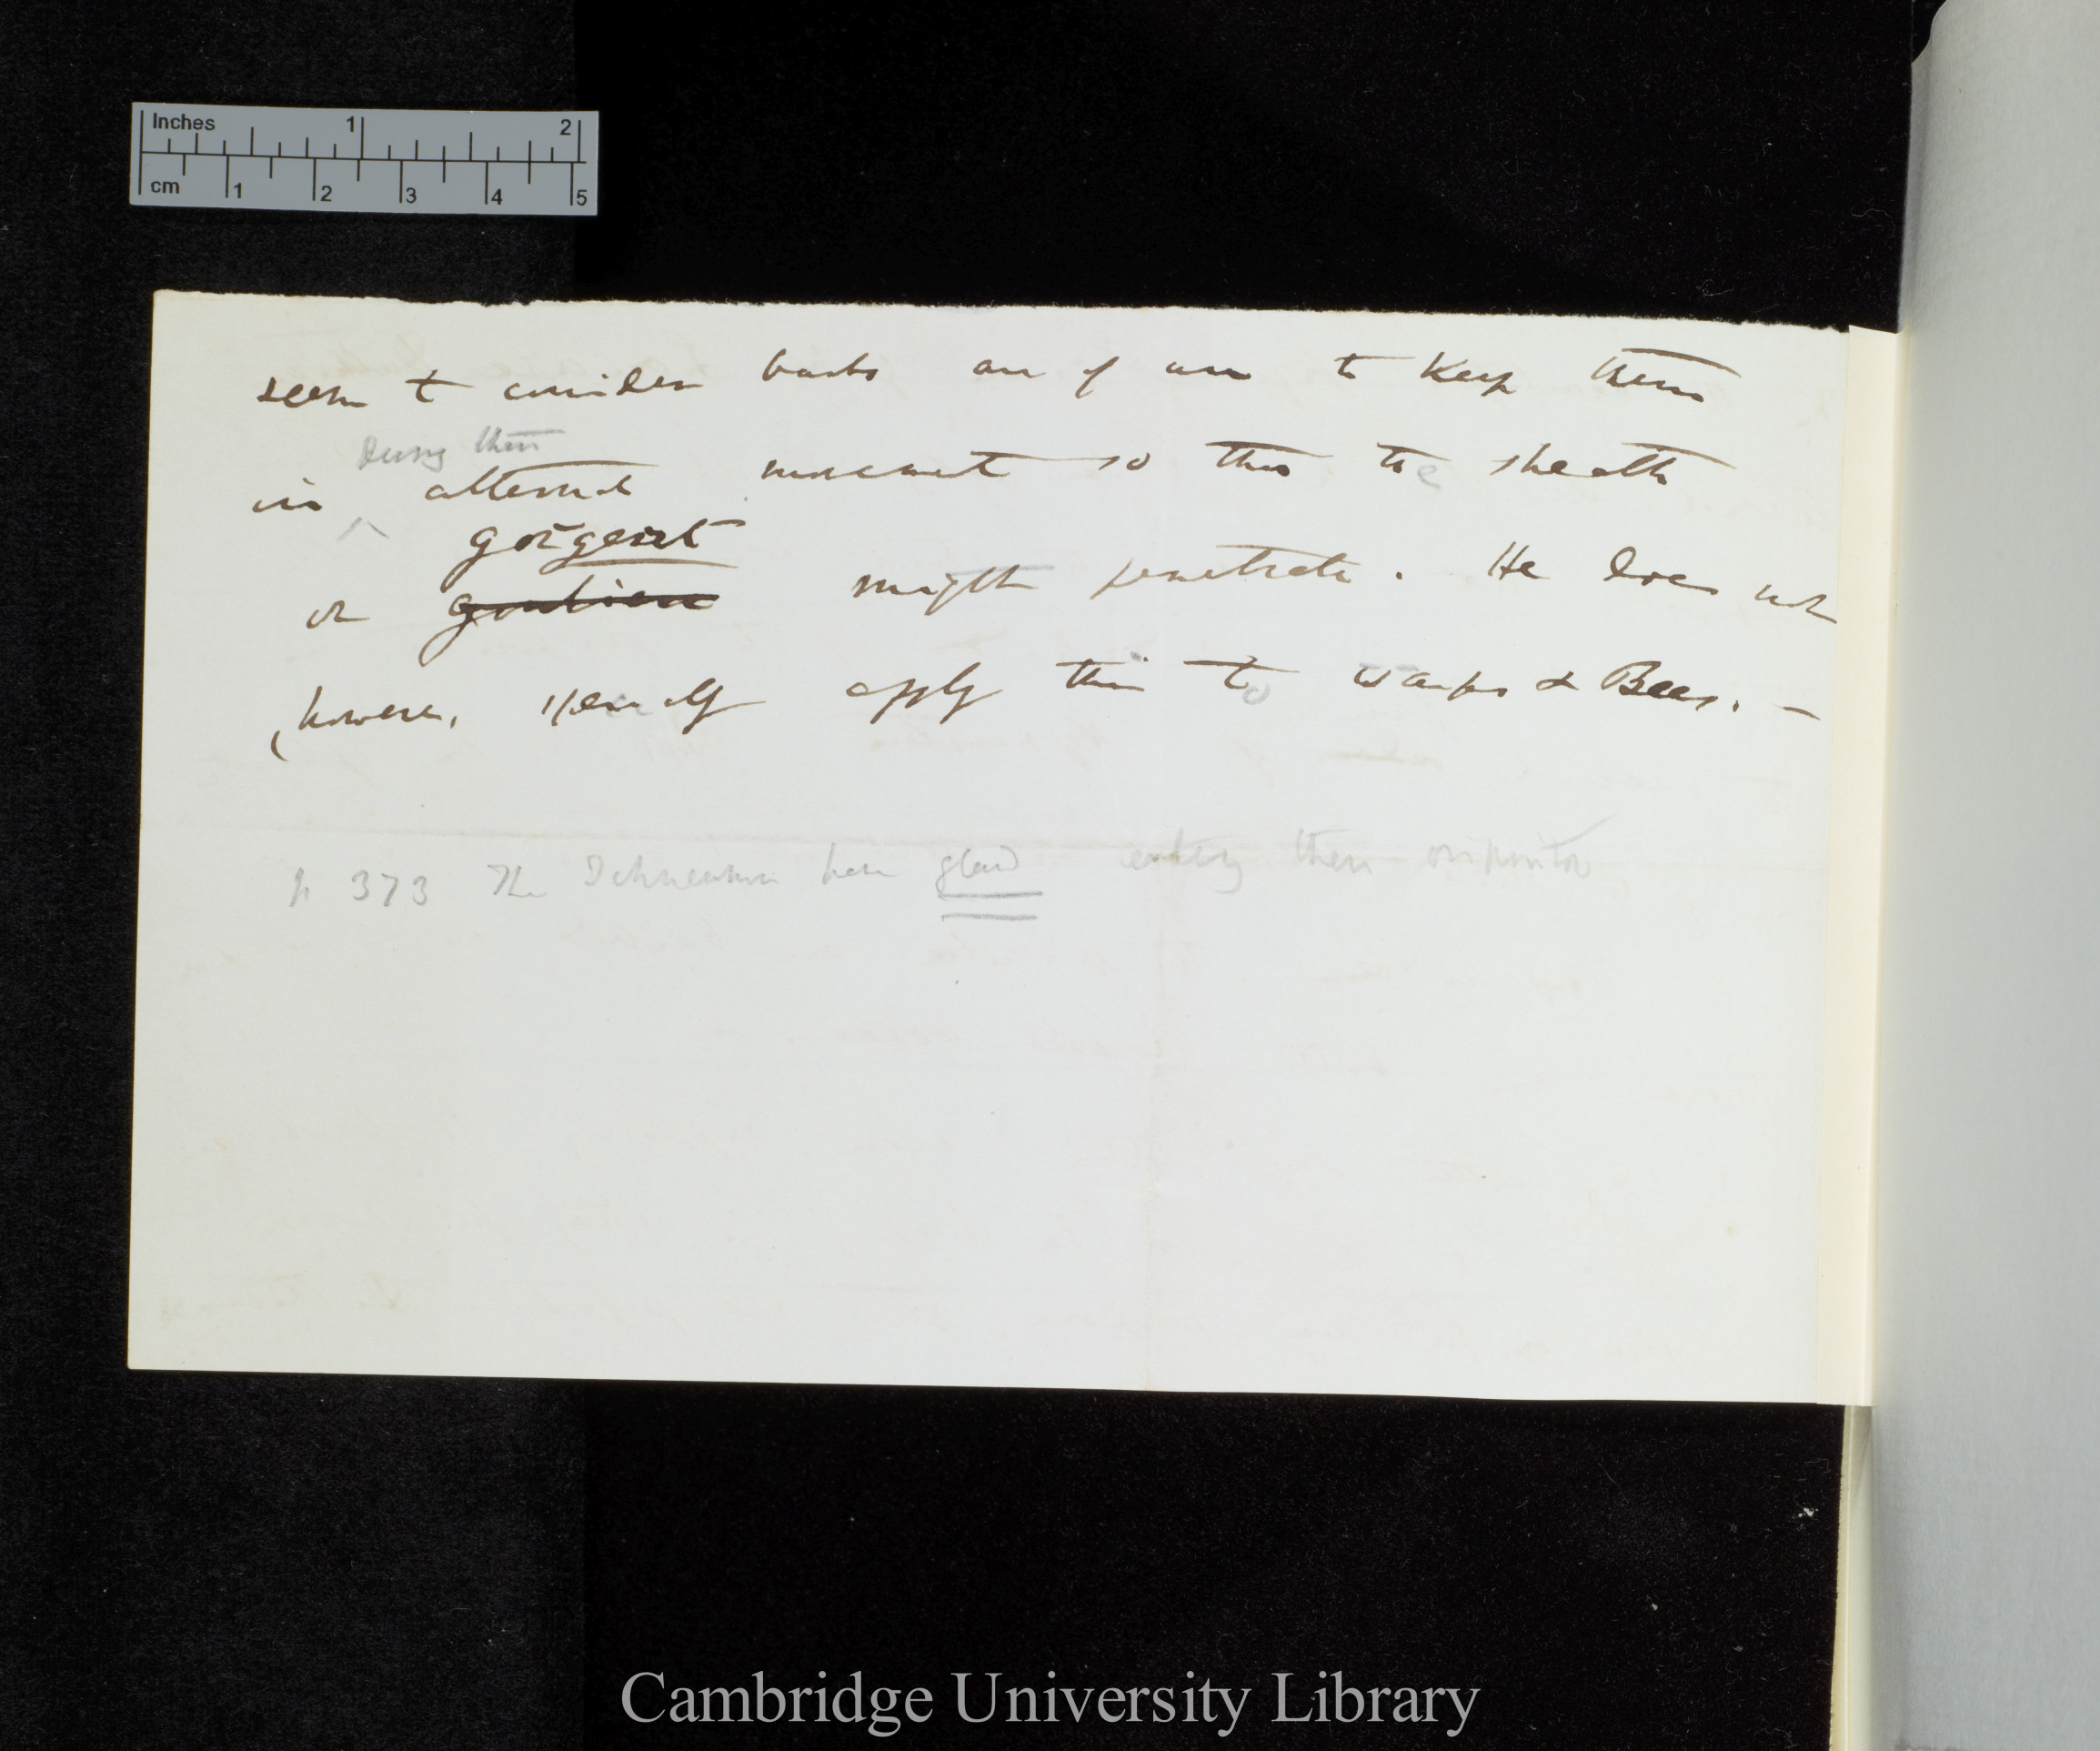 Inches 1 2
cm 1 2 3 4 5
seem to consider barbs are of use to keep them
during their
in alternate movement so that the sheath
gorgeret
or might penetrate. He does not
however, specially apply this to wasps & Bees. —
p 373 The Ichneumon have gland entering their ovipositor
Cambridge University Library